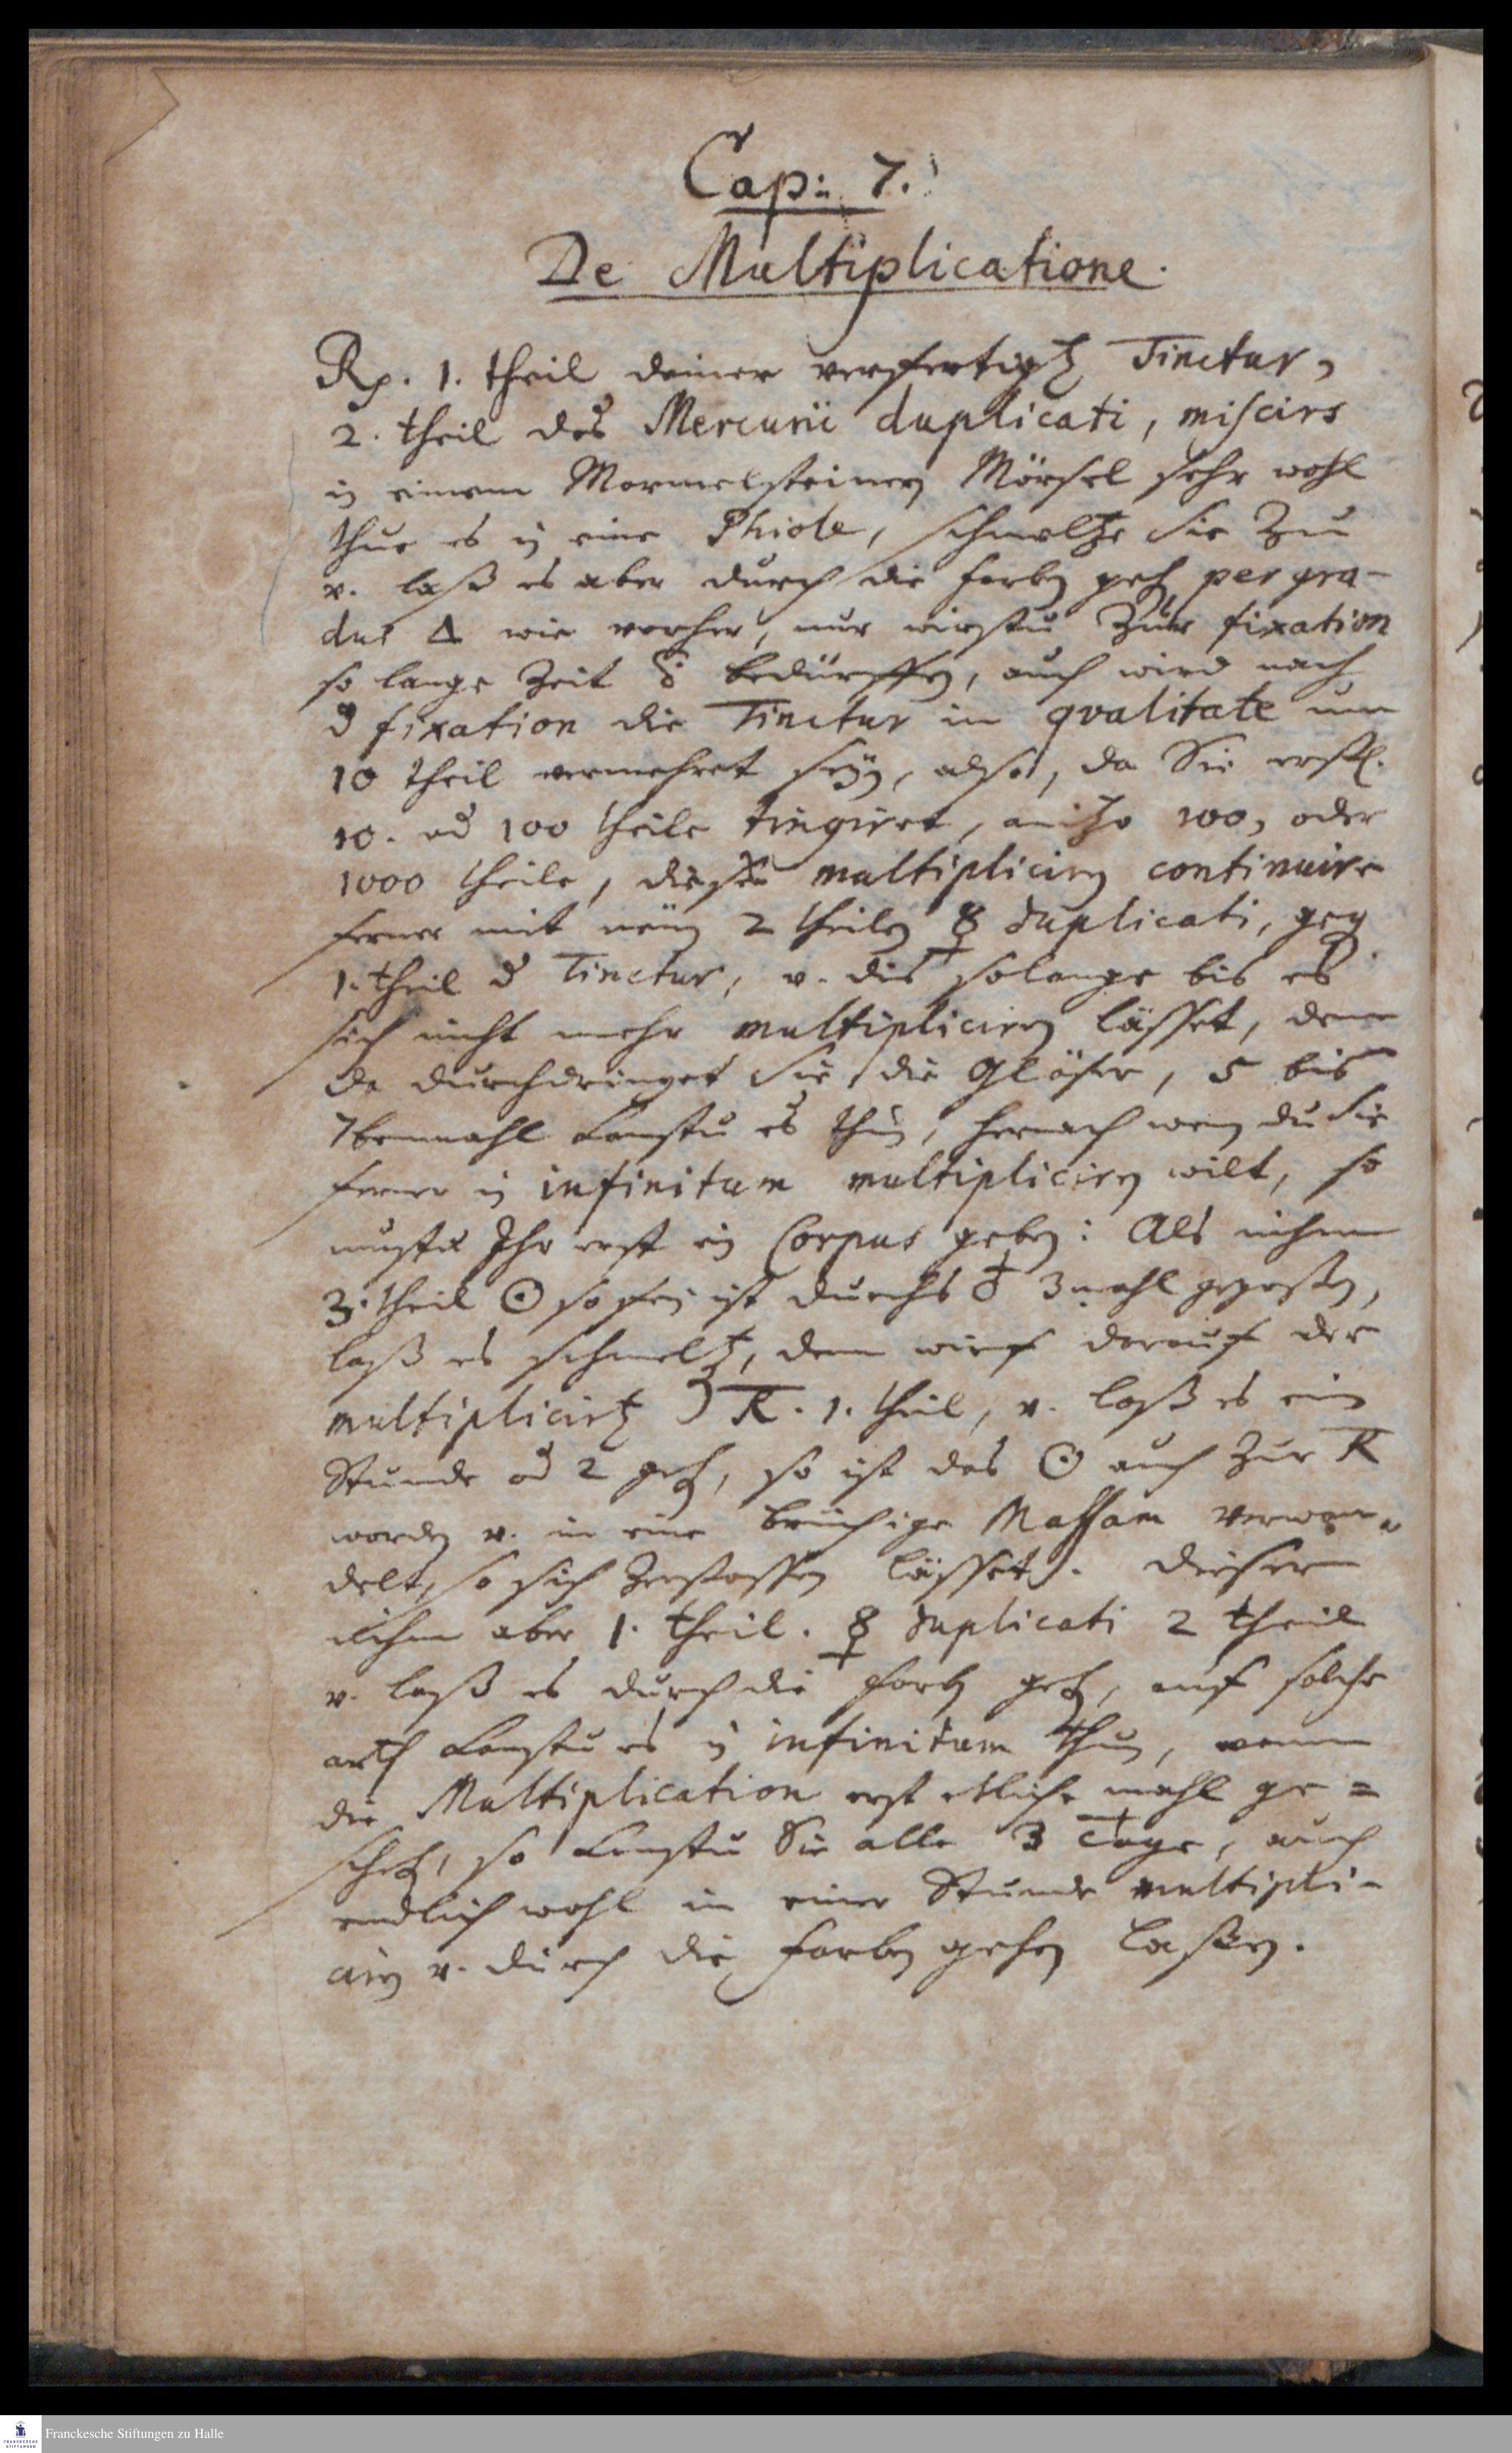 Cap: 7.
De Multiplicatione.
Rp. 1. theil deiner verfertigtẽ Tinctur,
2. theil des Mercurii duplicati, miscirs
in einem Marmelsteinen Mörsel sehr wohl
thue es in eine Phiole, schmeltze sie zu
v. laß es aber durch die farben gehẽ per gra-
dus 🜂 wie vorher, nur wirstu zur fixation
so lange Zeit bedürffen, auch wird nach
d fixation die Tinctur in qvalitate um
10 theil vermehret seyn, also, da Sie erstl.
10. od 100 theile tingiret, anitzo 100, oder
1000 theile, dieses multipliciren continuire
ferner mit neuen 2 theilen ☿ duplicati, gegen
1. theil d Tinctur, v. dis solange bis es
sich nicht mehr multipliciren lässet, denn
da durchdringet sie die Gläser, 5 bis
7benmahl kanstu es thun, hernach wenn du sie
ferner in infinitum multipliciren wilt, so
mustu Ihr erst ein Corpus geben: Als nihm
3. theil ☉ so fein ist durchs ♁ 3 mahl gegoßen,
laß es schmeltẽ, dann wirf darauf der
multiplicirtẽ R. 1. theil, v. laß es ein
Stunde od 2 gehẽ, so ist das ☉ auch zur R
worden v. in eine brüchige Massam verwan-
delt, so sich zerstossen lässet. dieser
nihm aber 1. theil. ☿ duplicati 2 theil
v. laß es durch die farbẽ gehẽ, auf solche
arth kanstu es in infinitum thun, wenn
die Multiplication erst etliche mahl ge=
schehẽ, so kanstu Sie alle 3 Tage, auch
endlich wohl in einer Stunde multipli-
ciren v. durch die farben gehen lassen.
Franckesche Stiftungen zu Halle